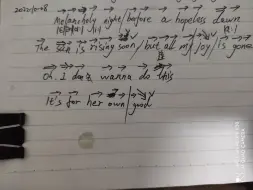 2022.10.08
Melancholy night / before a hopeless dawn
The sun is rising soon, / but all my joy / is gone
Oh. I don't wanna do this
It's for her own / good